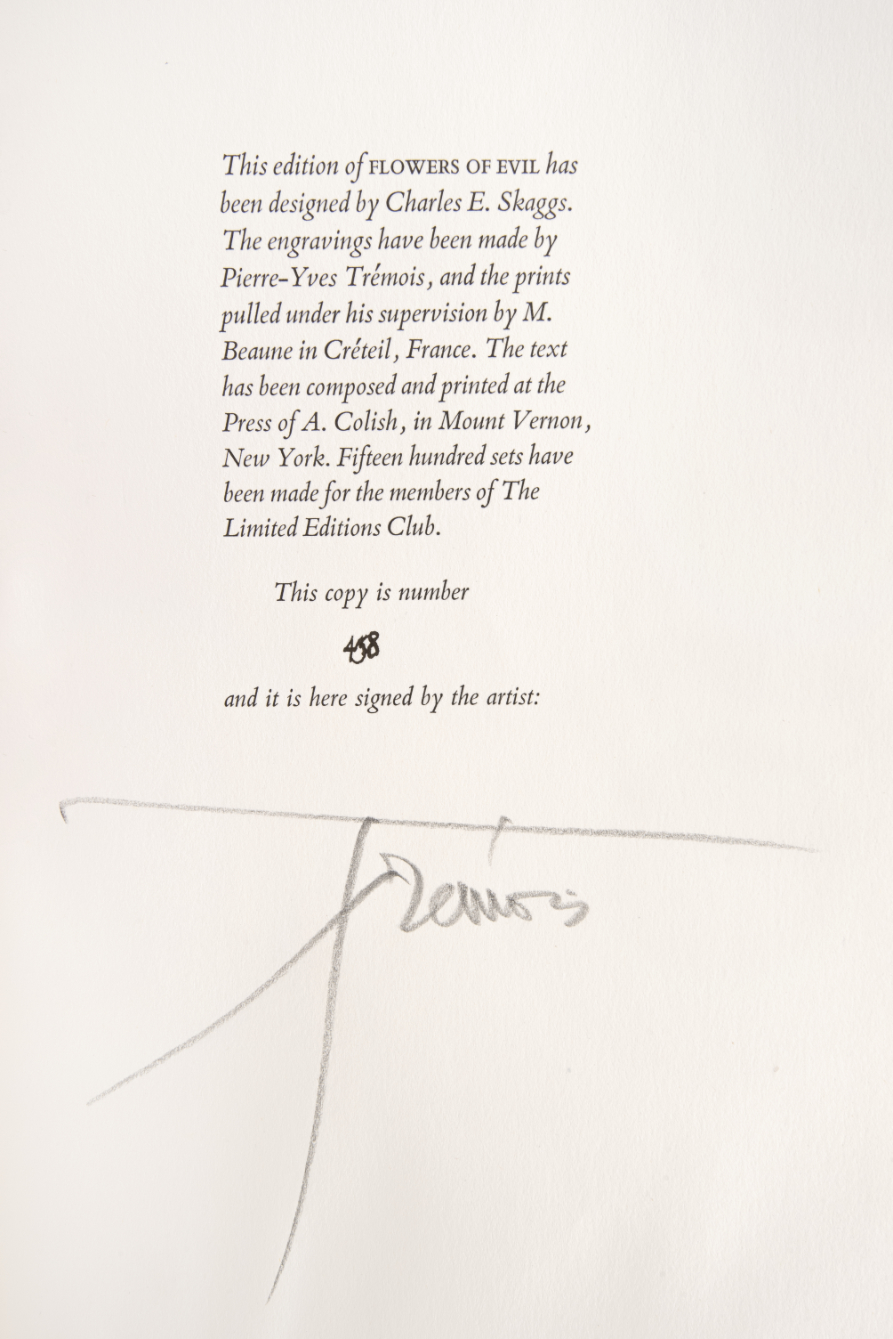 This edition of FLOWERS OF EVIL has
been designed by Charles E. Skaggs.
The engravings have been made by
Pierre-Yves Trémois, and the prints
pulled under his supervision by M.
Beaune in Créteil, France. The text
has been composed and printed at the
Press of A. Colish, in Mount Vernon,
New York. Fifteen hundred sets have
been made for the members of The
Limited Editions Club.
This copy is number
458
and it is here signed by the artist:
Trémois